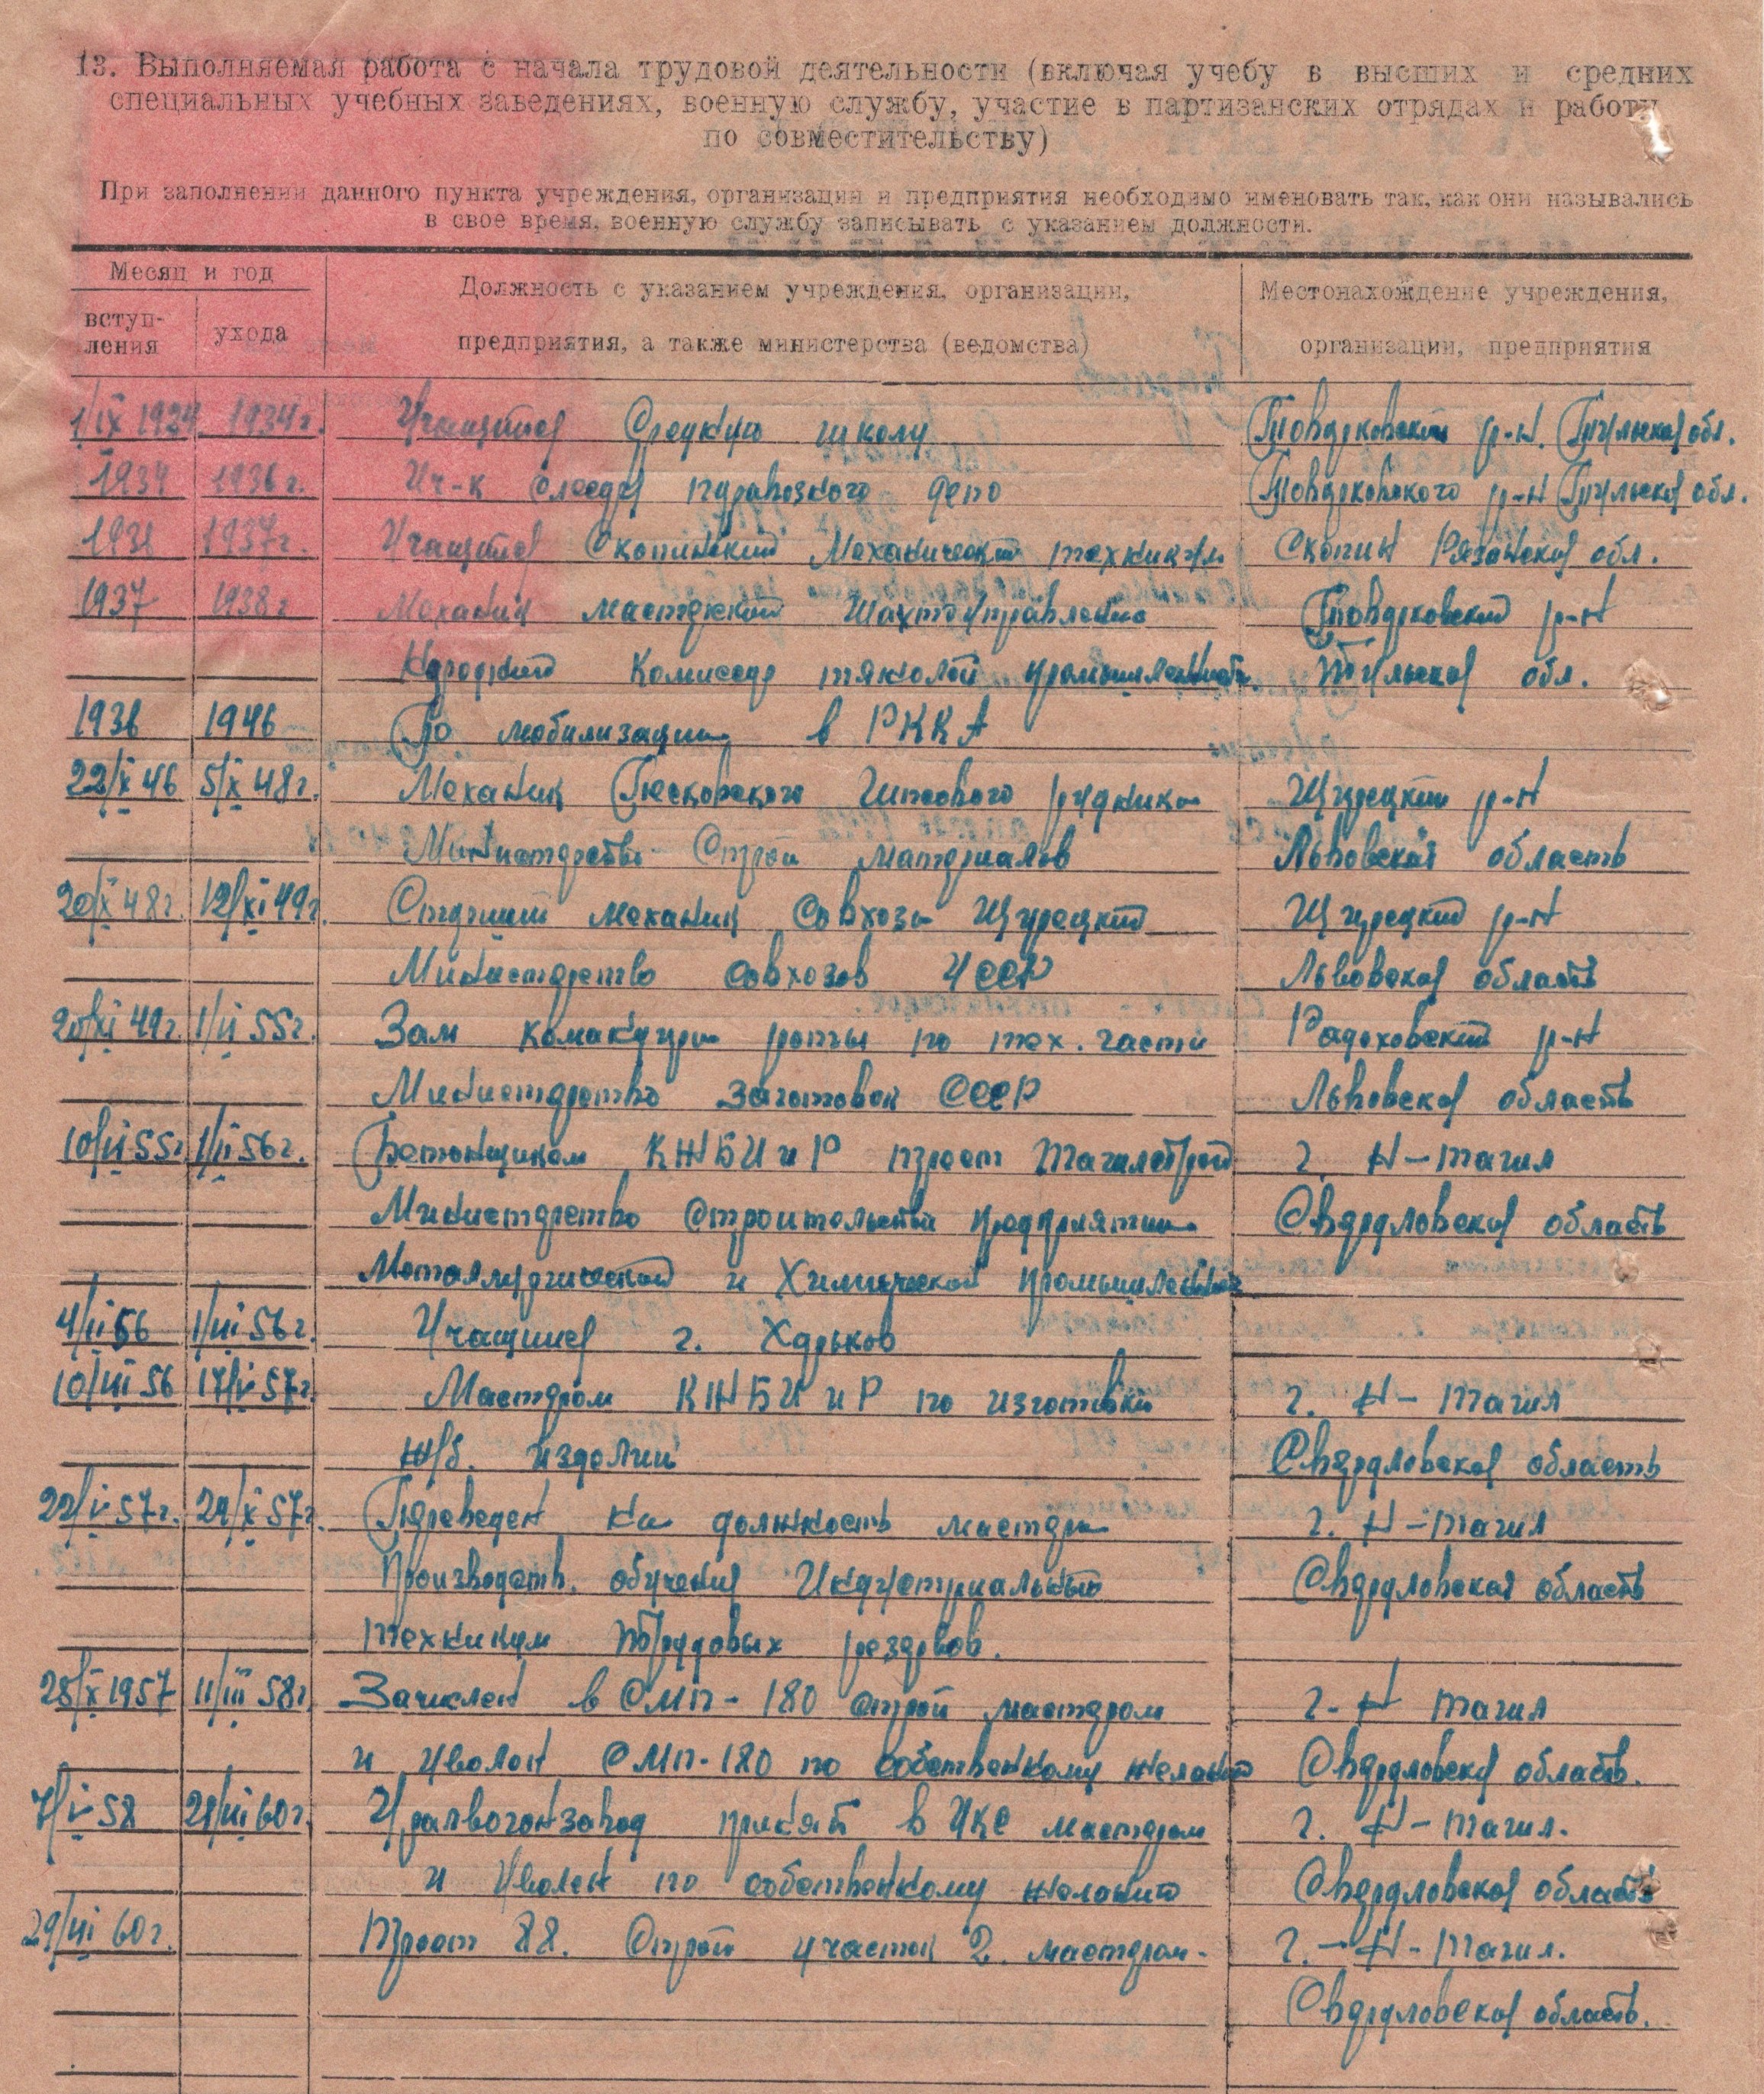 13. Выполняемая работа с начала трудовой деятельности (включая учебу в высших и средних
специальных учебных заведениях, военную службу, участие в партизанских отрядах и работу
по совместительству)
При заполнении данного пункта учреждения, организации и предприятия необходимо именовать так, как они назывались
в свое время, военную службу записывать с указанием должности.
Месяц и год
вступ-
ления
ухода
Должность с указанием учреждения, организации,
предприятия, а также министерства (ведомства)
Местонахождение учреждения,
организации, предприятия
1/IX 1924 1934г. Учащийся Средкую школу Товарковский р-н. Тульской обл.
1934 1936г. Уч-к слесаря паравозного депо Товарковского р-н Тульской обл.
1936 1937г. Учащийся Скопинский Механический техникум Скопин Рязанской обл.
1937 1938г Механик мастерской Шахтоуправление Товарковский р-н
Народный Комиссар тяжолой промышленность Тульской обл.
1938 1946 По мобилизации в РККА
22/X 46 5/X 48г. Механик Песковского Гипсового рудника Щирецкий р-н
Министерства Строй материалов Львовской область
20/X 48г. 12/XI 49г. Старший механик совхоза Щирецкий Щирецкий р-н
Министерство совхозов УССР Львовской область
20/XI 49г. 1/II 55г. Зам командира роты по тех. части Радеховский р-н
Министерство заготовок СССР Львовской область
10/II 55г. 1/II 56г. Бетонщиком КЖБИиР трест Тагилстрой г. Н-Тагил
Министерство Строительства предприятии Свердловской область
Металлургической и Химической промышленности
4/II 56 1/III 56г. Учащийся г. Харьков
10/III 56 17/V 57г. Мастером КЖБИиР по изготовки г. Н-Тагил
ж/б. изделий Свердловской область
22/V 57г. 24/X 57г. Переведен на должность мастера г. Н-Тагил
Производств. обучения Индустриальный Свердловской область
техникум Трудовых резервов.
28/X 1957 11/III 58г. Зачислен в СМП-180 строй мастером г. Н Тагил
и Уволен СМП-180 по собственному желанию Свердловской область.
7/V 58 28/III 60г. Уралвогонзавод принят в УКС мастером г. Н-Тагил.
и Уволен по собственному желанию Свердловской область
29/III 60г. Трест 88. Строй участок 2. мастером. г. Н-Тагил.
Свердловской область.